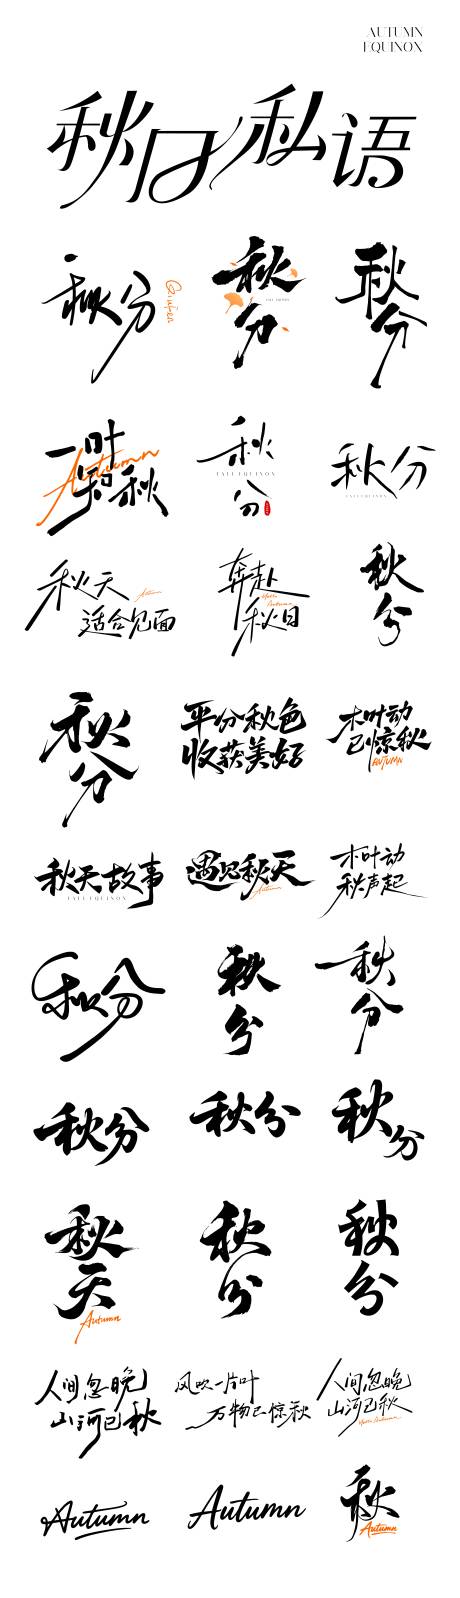 AUTUMN
EQUINOX
秋日私语
秋分
Qiufen
秋
分
秋
分
一叶
知秋
Autumn
秋
FALL EQUINOX
分
秋分
FALL EQUINOX
秋天
Autumn
适合见面
奔赴
Hello
Autumn
秋日
秋
分
秋
分
平分秋色
收获美好
木叶动
已惊秋
AUTUMN
秋天故事
FALL EQUINOX
遇见秋天
Autumn
木叶动
秋声起
秋分
秋
分
秋
分
秋分
秋分
秋
分
秋
天
Autumn
秋
分
秋
分
人间忽晚
山河已秋
风吹一片叶
万物已惊秋
人间忽晚
山河已秋
Hello Autumn
Autumn
Autumn
秋
Autumn